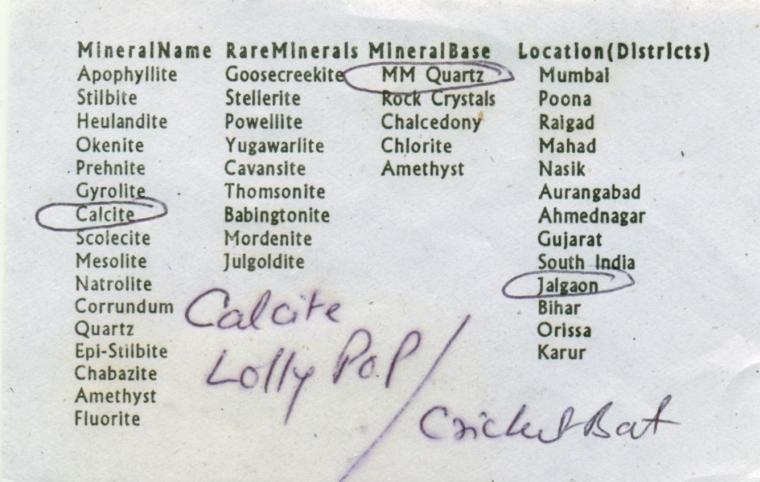 MineralName RareMinerals MineralBase Location(Districts)
Apophyllite Goosecreekite MM Quartz Mumbai
Stilbite Stellerite Rock Crystals Poona
Heulandite Powellite Chalcedony Raigad
Okenite Yugawarlite Chlorite Mahad
Prehnite Cavansite Amethyst Nasik
Gyrolite Thomsonite Aurangabad
Calcite Babingtonite Ahmednagar
Scolecite Mordenite Gujarat
Mesolite Julgoldite South India
Natrolite Jalgaon
Corrundum Bihar
Quartz Orissa
Epi-Stilbite Karur
Chabazite
Amethyst
Fluorite
Calcite
Lolly Pop /
Cricket Bat